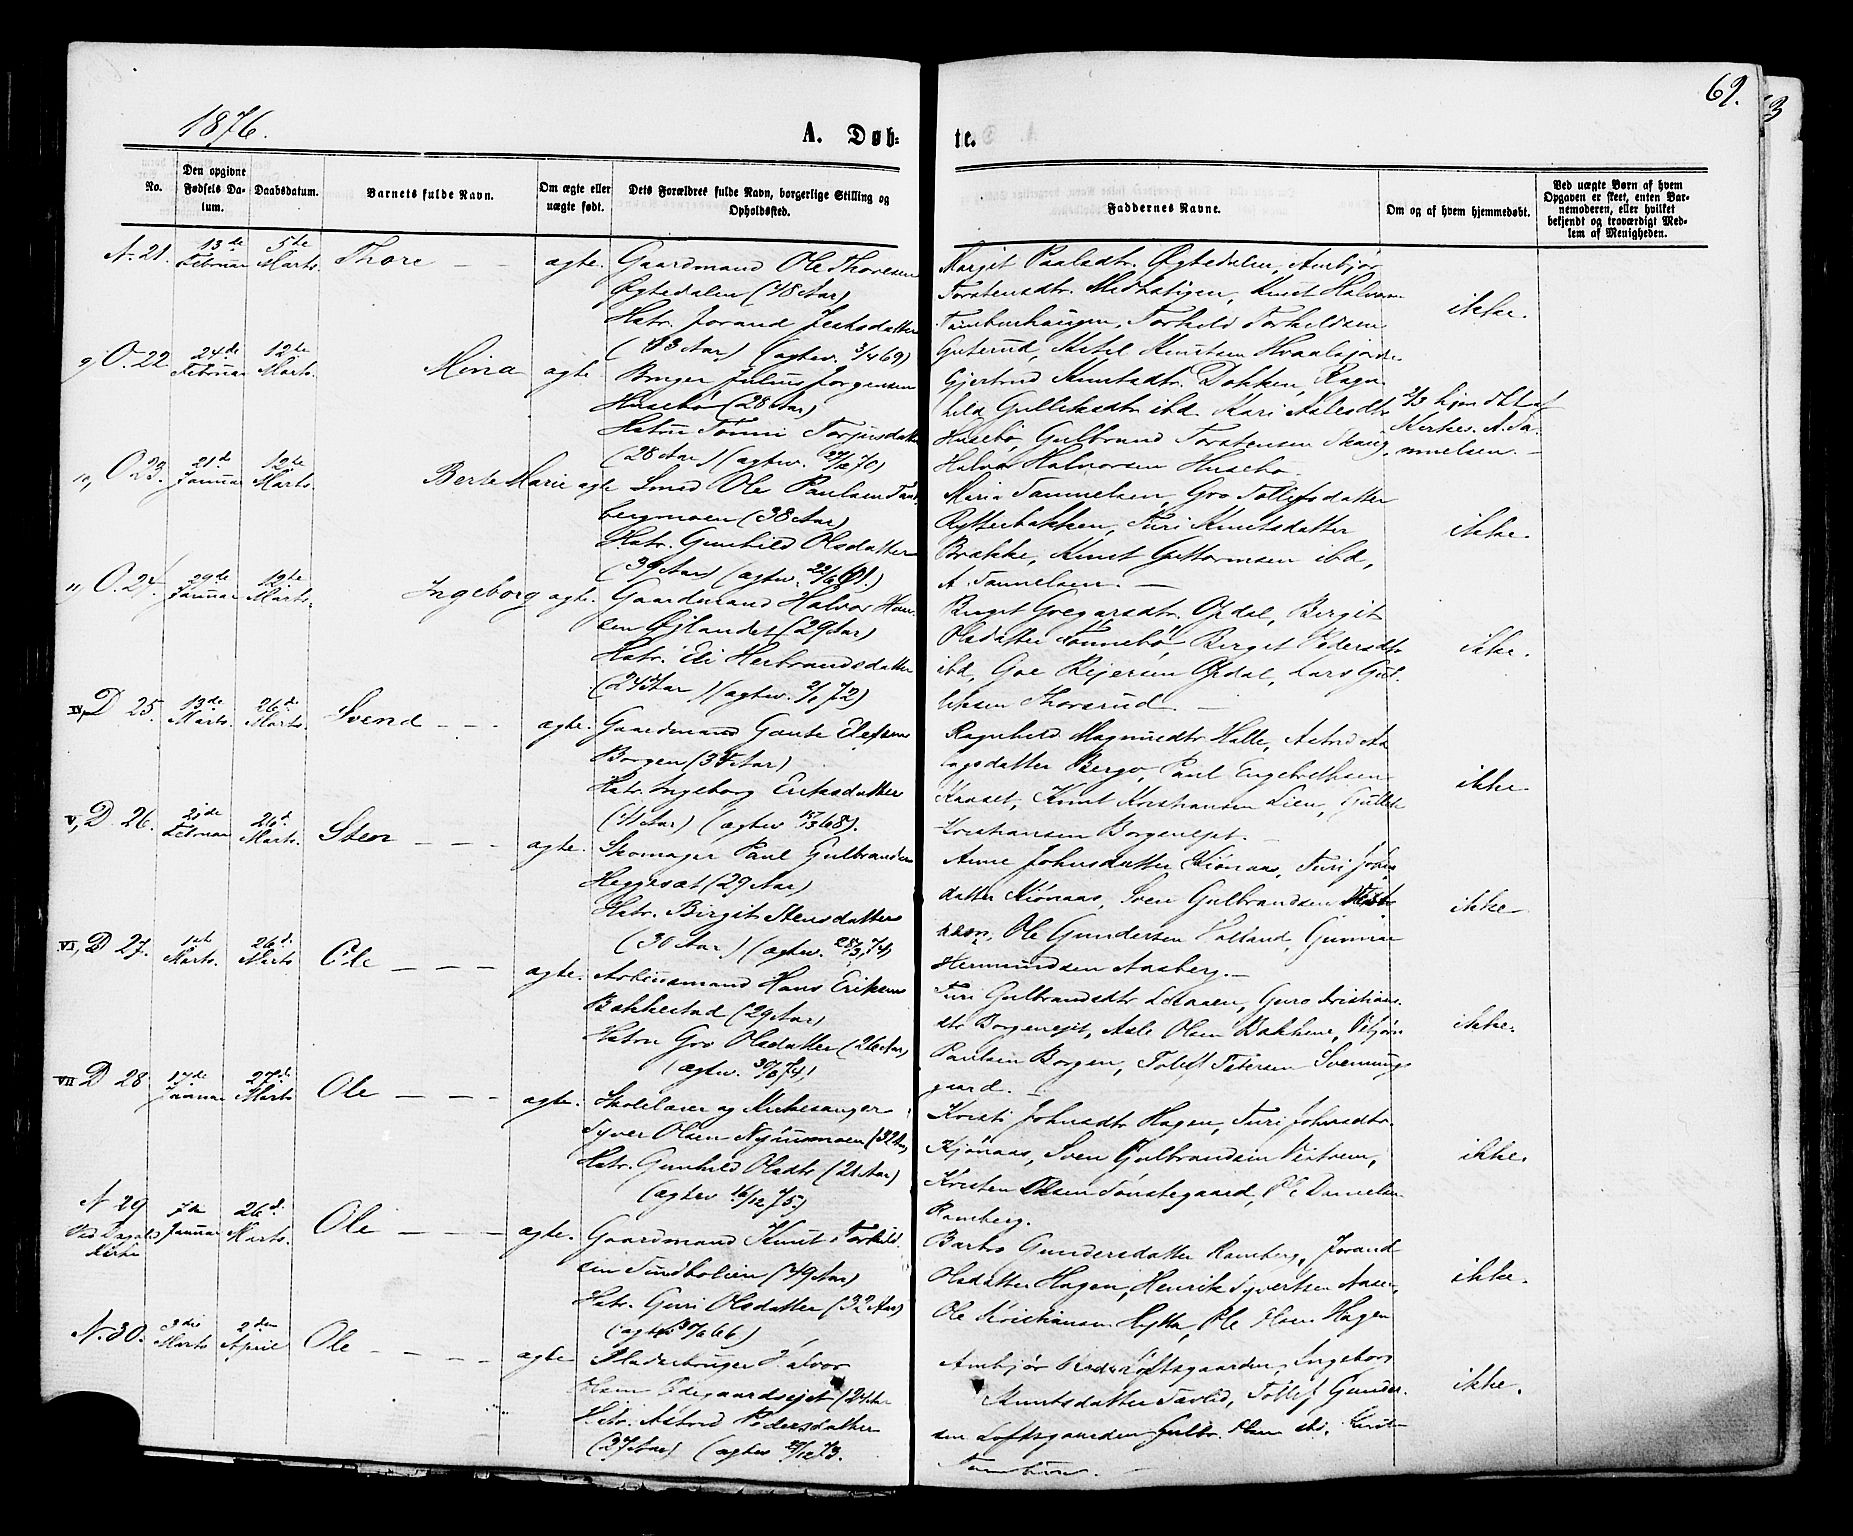 1876.
A. Døb-
te.
69.
No.
Den opgivne Fødsels Datum.
Daabsdatum.
Barnets fulde Navn.
Om ægte eller uægte født.
Dets Forældres fulde Navn, borgerlige Stilling og Opholdssted.
Faddernes Navne.
Om og af hvem hjemmedøbt.
Ved uægte Børn af hvem Opgaven er skeet, enten Barnemoderen, eller hvilket bekjendt og troværdigt Medlem af Menigheden.
N. 21. 13de Februar 5te Marts. Thore — — ægte. Gaardmand Ole Thoresen
Øgtedalen (48 Aar)
Hstr. Jorand
(43 Aar) (ægtev. 3/4 69)
Margit Paalsdtr. Øgtedalen, Anbjør
Torstensdtr. Knut Halvorsen
Torkild Torkildsen
Guterud, Ketil Knutsen
ikke.
O. 22. 24de Februar 12te Marts. Mina ægte. Bruger Julius Jørgensen
Husebø (28 Aar)
Hstru Tonni Torjusdatter
(28 Aar) (ægtev. 27/12 70)
Gjertrud Knutsdtr. Dokken, Ragn-
hild Gulliksdtr ibd. Kari Aslesdtr
Husebø, Gulbrand Torstensen
Halvor Halvorsen Husebø.
Kirkes. A. Sa-
muelsen. —
O 23. 21de Januar 12te Marts. Berte Marie ægte Smed Ole Paulsen
bergmoen (38 Aar)
Hstr. Gunhild Olsdatter
(39 Aar) (ægtev. 22/6 61.)
Maria Samuelsen, Gro Tollefsdatter
Rytterbakken, Turi Knutsdatter
Brække, Knut Guttormsen ibd,
A. Samuelsen. —
ikke.
O. 24. 29de Januar 12te Marts. Ingeborg ægte. Gaardmand Halvor Han-
sen Øilandet (29 Aar)
Hstr. Eli Herbrandsdatter
(24 Aar) (ægtev. 2/1 72)
Birgit Gregarsdtr. Opdal, Birgit
Olsdatter Tonnebø, Birget Pedersdtr
ibd, Goe Rejersen Opdal, Lars Gul-
liksen Thorsrud. —
ikke.
IV, D 25. 13de Marts. 26de Marts. Svend — — — ægte. Gaardmand Gaute Elefsen
Borgen (35 Aar)
Hstr. Ingeborg Eriksdatter
(41 Aar) (ægtev 17/3 68).
Ragnhild Magnusdtr Halle, Astrid
datter Bergo, Paul Engebrethsen
Kaaset, Knut Kristiansen Lien, Gullik
Kristiansen Borgenejet. —
ikke.
V, D 26. Februar 26d. Marts. Sten — — — ægte. Skomager Paul Gulbrandsen
Heggesæt (29 Aar)
Hstr. Birgit Stensdatter
(30 Aar) (ægtev. 28/3 74)
Anne Johnsdatter Kjønaas, Turi Johns-
datter Kjønaas, Sven Gulbrandsen
Ole Gundersen Holland, Gunnar
Hermundsen Aasberg. —
ikke
VI, D 27. 1ste Marts. 26d. Marts Ole — — — ægte. Arbeidsmand Hans Eriksen
Bakkestad (29 Aar)
Hstru Gro Olsdatter (26 Aar)
(ægtev. 30/6 74)
Turi Gulbrandsdtr Guro Kristians-
dtr Borgenejet, Asle Olsen Bakkene,
Paulsen Borgen, Tollef Petersen Svenungs-
gaard. —
ikke.
VII D 28 17de Januar 27d. Marts Ole — — — ægte. Skolelærer og Kirkesanger
Syver Olsen Nymoen (32 Aar)
Hstr. Gunhild Olsdtr (21 Aar)
(ægtev 16/12 75.)
Kristi Johnsdtr Hagen, Turi Johnsdtr.
Kjønaas, Sven Gulbrandsen
Kristen Olsen Tonstegaard, Ole Danielsen
Ramberg.
ikke.
N 29 Ved Dagalis Kirke Januar 26d. Marts. Ole — — — ægte. Gaardmand Knut Torkild-
sen (49 Aar)
Hstr. Guri Olsdatter (32 Aar)
(ægtev 30/6 66)
Barbro Gundersdatter Ramberg, Jorand
Olsdatter Hagen, Henrik Syvertsen Aasen,
Ole Kristiansen Hytta, Ole Olsen Hagen
ikke.
N. 30. 3die Marts 2den April Ole — — — ægte Pladsebruger Halvor
Olsen Ødegaardsejet (24 Aar
Hstr. Astrid Pedersdatter
(37 Aar) (ægtev 29/12 73.
Anbjør Loftsgaarden, Ingeborg
Knutsdatter Tollef Gunder-
sen Loftsgaarden Gulbr. Olsen ibd,
ikke.